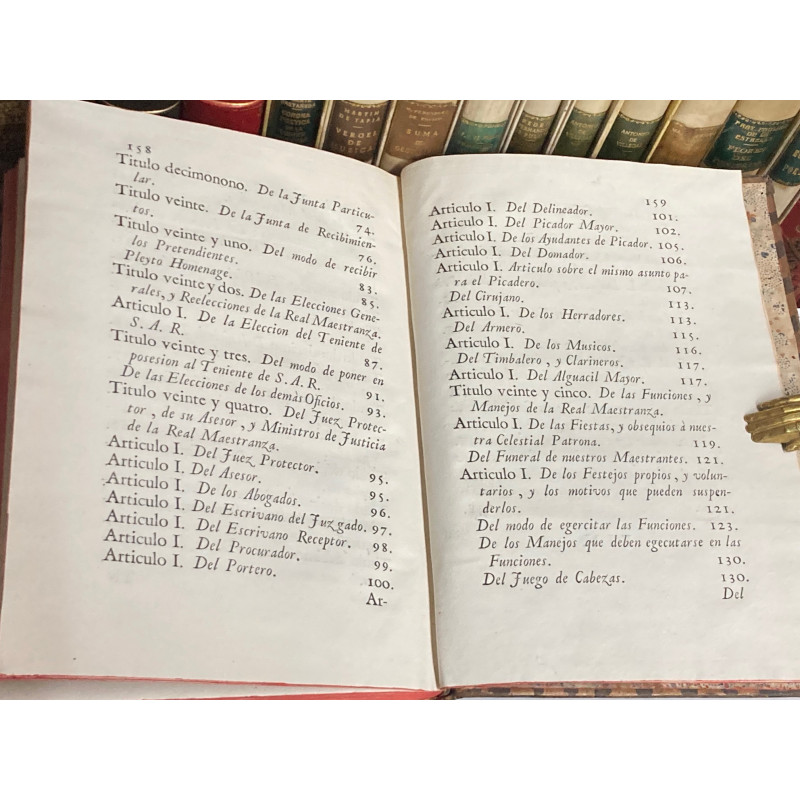 CORONA
POETICA
DE LA
MARTIN
DE TAPIA
VERGEL
DE MUSICA
SUMA
ANTONIO
DE VILLEGAS
158
Titulo decimonono. De la Junta Particu-
lar. 74.
Titulo veinte. De la Junta de Recibimien-
tos. 76.
Titulo veinte y uno. Del modo de recibir
los Pretendientes. 83.
Pleyto Homenage. 85.
Titulo veinte y dos. De las Elecciones Gene-
rales, y Reelecciones de la Real Maestranza.
Articulo I. De la Eleccion del Teniente de
S. A. R. 87.
Titulo veinte y tres. Del modo de poner en
posesion al Teniente de S. A. R. 91.
De las Elecciones de los demàs Oficios. 93.
Titulo veinte y quatro. Del Juez Protec-
tor, de su Asesor, y Ministros de Justicia
de la Real Maestranza.
Articulo I. Del Juez Protector. 95.
Articulo I. Del Asesor. 95.
Articulo I. De los Abogados. 96.
Articulo I. Del Escrivano del Juzgado. 97.
Articulo I. Del Escrivano Receptor. 98.
Articulo I. Del Procurador. 99.
Articulo I. Del Portero. 100.
Ar-
159
Articulo I. Del Delineador. 101.
Articulo I. Del Picador Mayor. 102.
Articulo I. De los Ayudantes de Picador. 105.
Articulo I. Del Domador. 106.
Articulo I. Articulo sobre el mismo asunto pa-
ra el Picadero. 107.
Del Cirujano. 113.
Articulo I. De los Herradores. 113.
Del Armero. 115.
Articulo I. De los Musicos. 116.
Del Timbalero, y Clarineros. 117.
Articulo I. Del Alguacil Mayor. 117.
Titulo veinte y cinco. De las Funciones, y
Manejos de la Real Maestranza.
Articulo I. De las Fiestas, y obsequios à nues-
tra Celestial Patrona. 119.
Del Funeral de nuestros Maestrantes. 121.
Articulo I. De los Festejos propios, y volun-
tarios, y los motivos que pueden suspen-
derlos. 121.
Del modo de egercitar las Funciones. 123.
De los Manejos que deben egecutarse en las
Funciones. 130.
Del Juego de Cabezas. 130.
Del